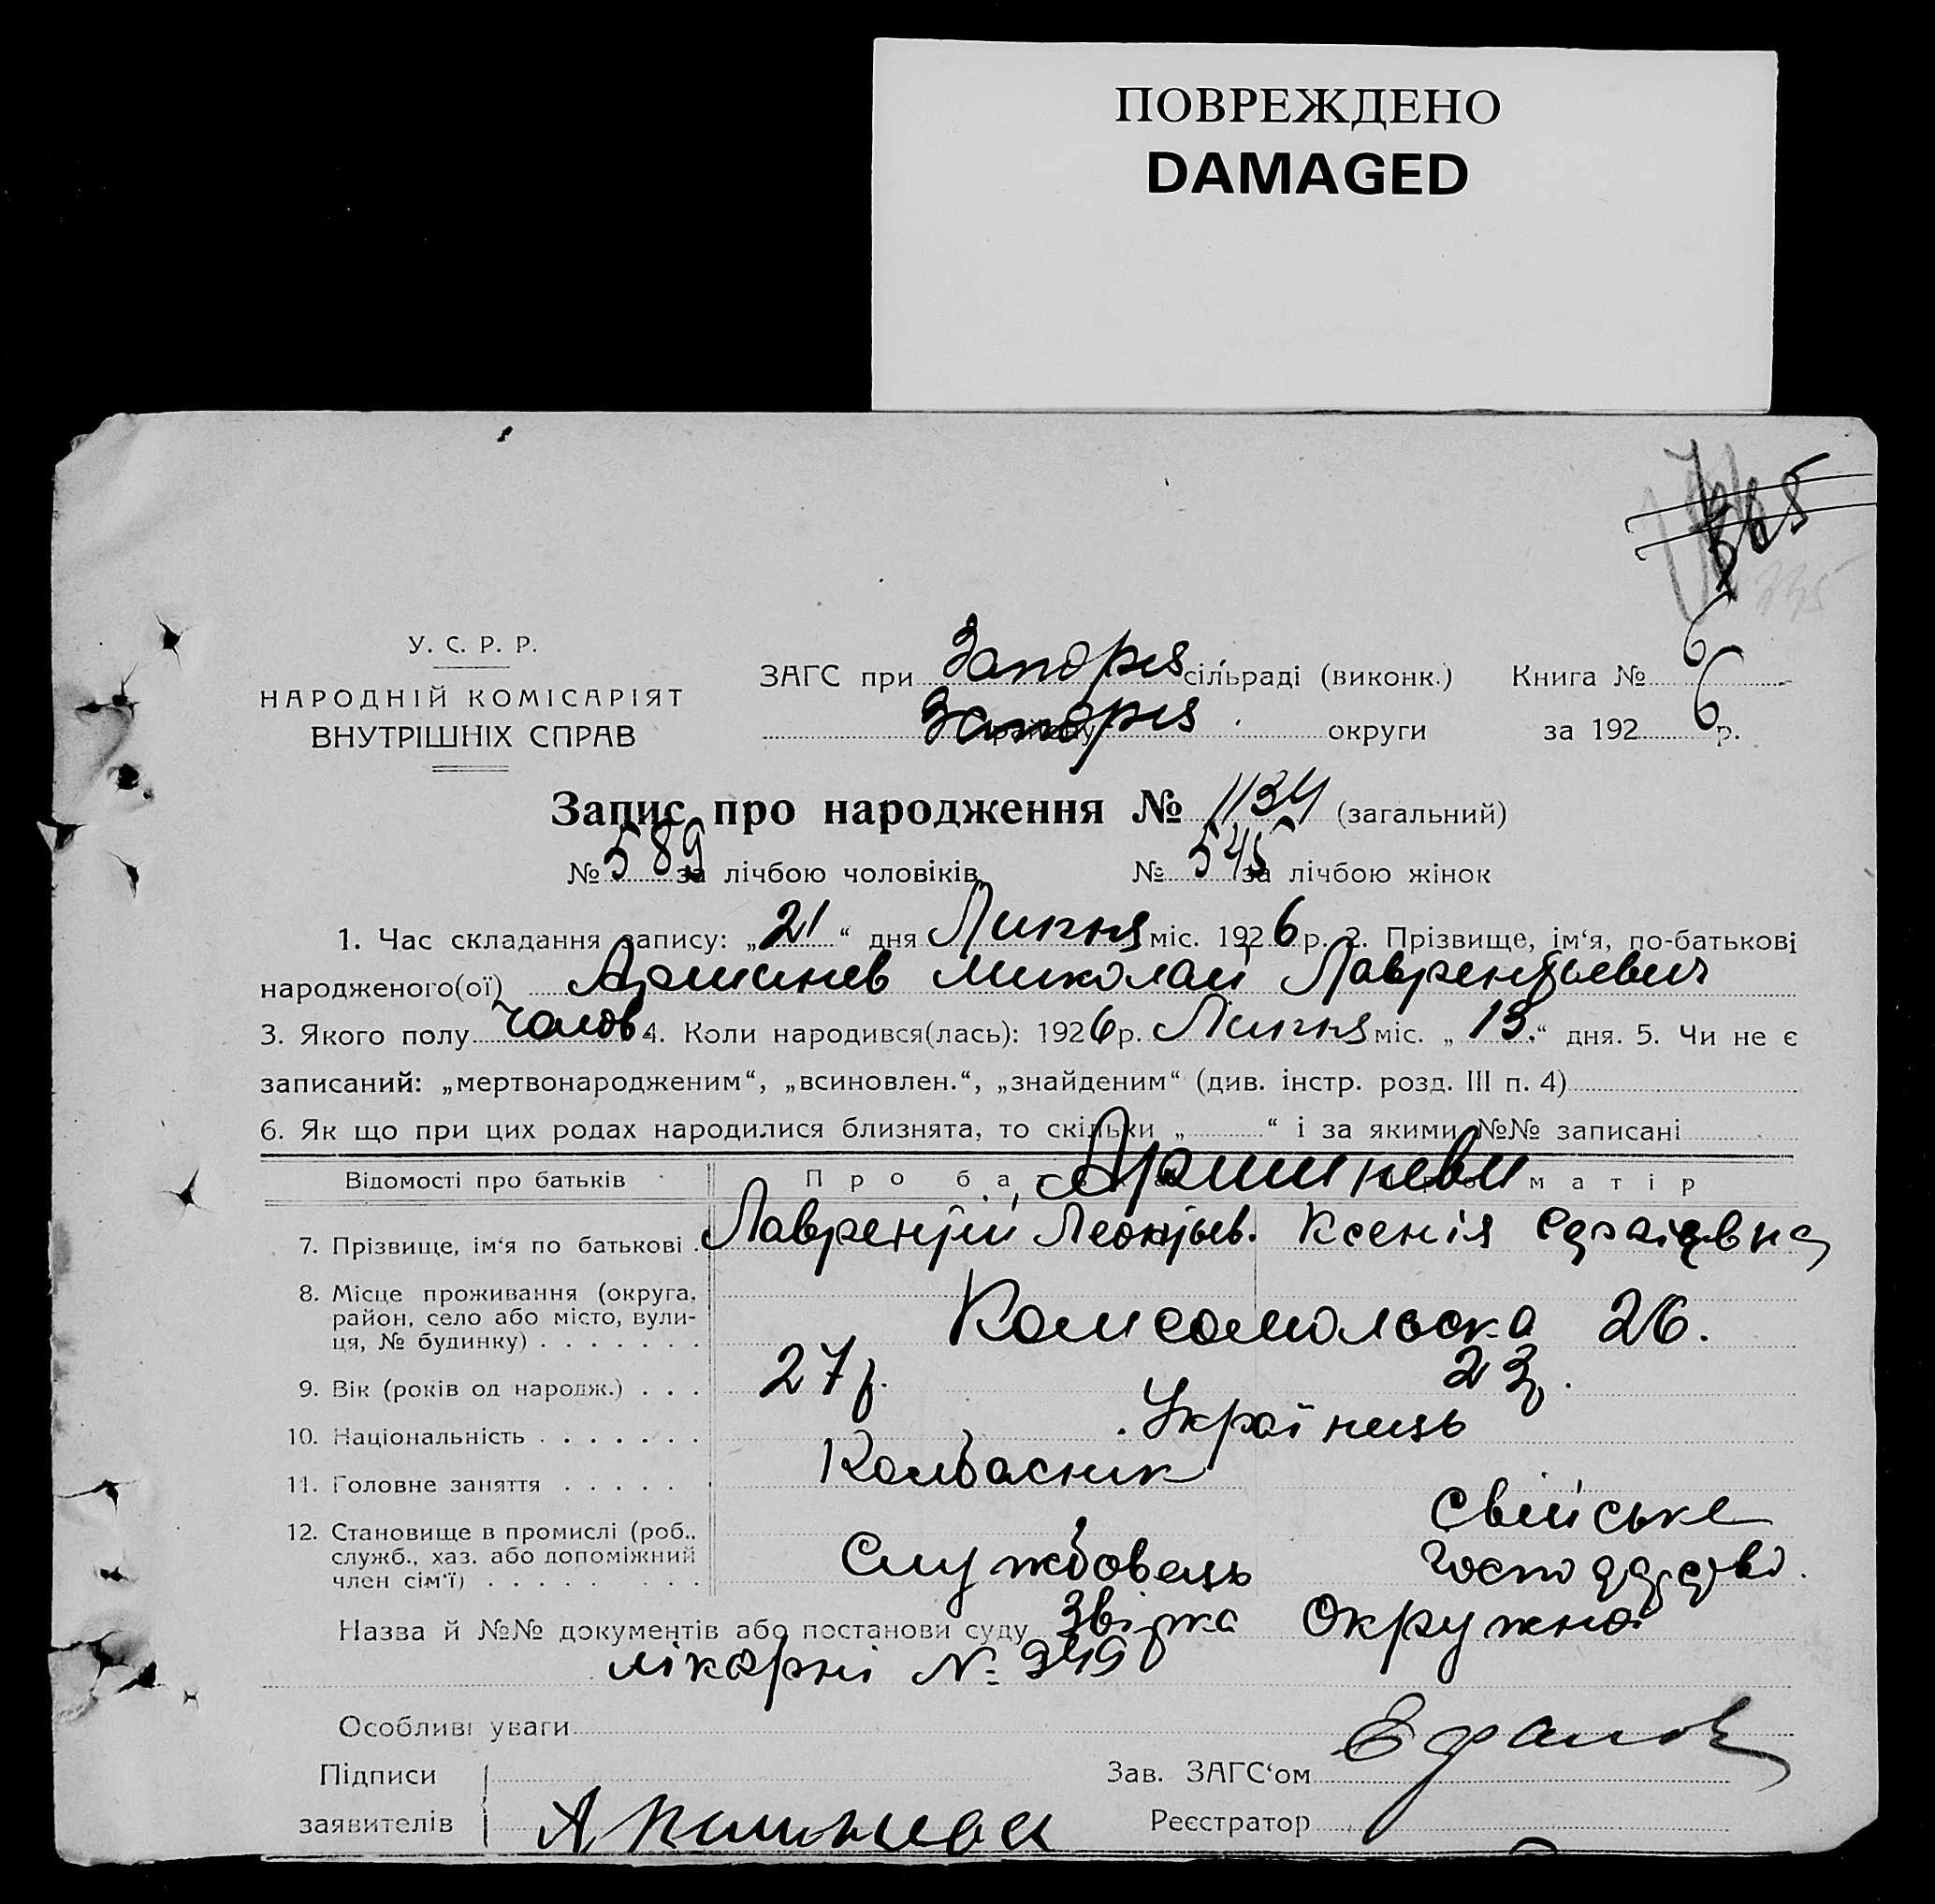 ПОВРЕЖДЕНО
DAMAGED
У. С. Р. Р.
НАРОДНІЙ КОМІСАРІЯТ
ВНУТРІШНІХ СПРАВ
ЗАГС при Запоріз сільраді (виконк.) Книга № 6
Запоріз округи за 1926 р.
Запис про народження № 1134 (загальний)
№ 589 за лічбою чоловіків № 545 за лічбою жінок
1. Час складання запису: „21“ дня Липня міс. 1926 р. 2. Прізвище, ім‘я, по-батькові
народженого(ої) Аршинев Миколай Лаврентьевич
3. Якого полу чолов. 4. Коли народився(лась): 1926 р. Липня міс. „13.“ дня. 5. Чи не є
записаний: „мертвонародженим“, „всиновлен.“, „знайденим“ (див. інстр. розд. III п. 4)
6. Як що при цих родах народилися близнята, то скільки „ “ і за якими №№ записані
Відомості про батьків Про ба матір
Аршиневи
7. Прізвище, ім‘я по батькові Лаврентий Леонтьев. Ксенія
8. Місце проживання (округа, район, село або місто, вули-
ця, № будинку) Комсомольска 26.
9. Вік (років од народж.) 27 р. 23 р.
10. Національність Українець
11. Головне заняття Колбасник
12. Становище в промислі (роб., Свійське
служб., хаз. або допоміжний
член сім‘ї) Службовець господарство.
Назва й №№ документів або постанови суду Звістка Окружної
лікарні № 949
Особливі уваги
Підписи
Зав. ЗАГС‘ом
заявителів Аршинева
Реєстратор